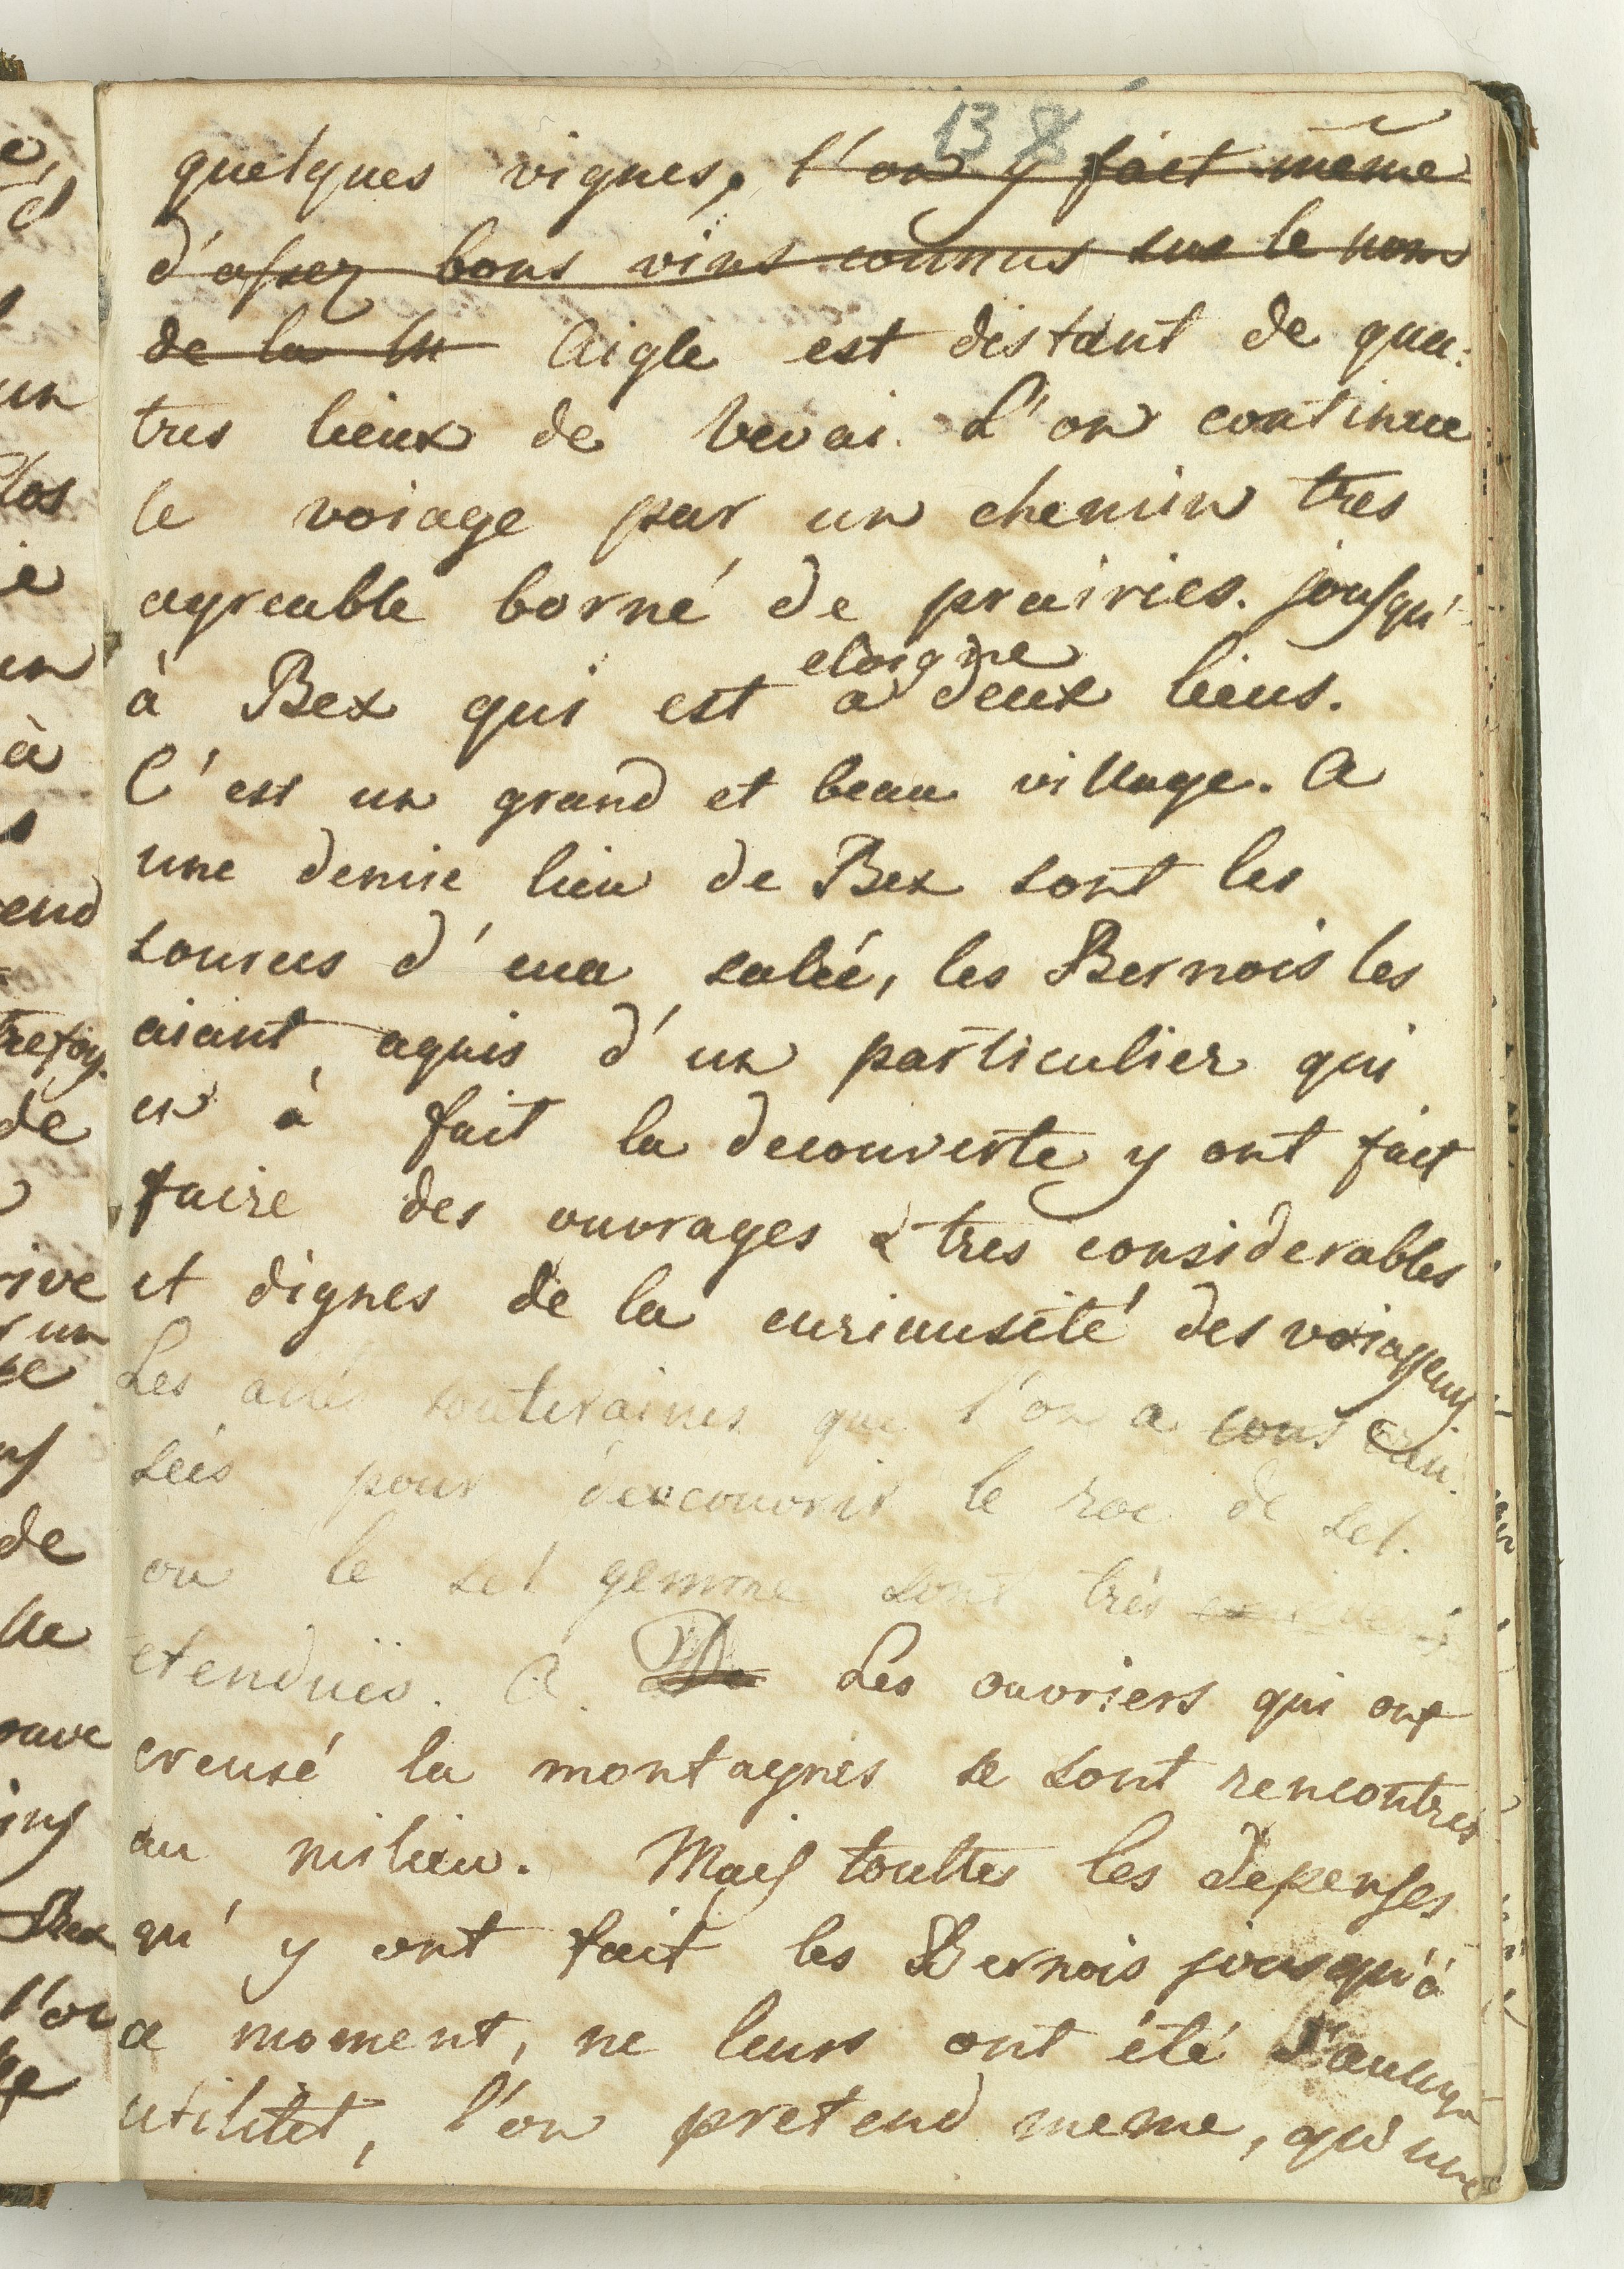 13 8
quelques vignes, l'on y fait même
d'assez bons vins connus sus le nom
de la Aigle est distant de qua:
tres lieux de Vevai. L'on continue
le voiage par un chemin tres
agreable borné de prairies. jousqu'-
eloigne
à Bex qui est a deux lieus.
C'est un grand et beau village. A
une demie lieu de Bex sont les
sources d'eua saleé, les Bernois les
aiant aquis d'un particulier qui
en à fait la decouverte y ont fait
faire des ouvrages tres considerables
et dignes de la curiousité des voiageurs
Les souteraines que l'on a
seés pour dexcouvrir le roc de sel.
ou le sel gemme sont très
etenduës. A De Les ouvriers qui ont
creusé la montagnes se sont rencontrés
au milieu. Mais touttes les depenses
qu'y ont fait les Bernois jousqu'à
ce moment, ne leurs ont été d'aucuna
utilitet, l'on pretend meme, qu'une
e,
un
à
end
de
rive
un
de
lle
Bex
l'on